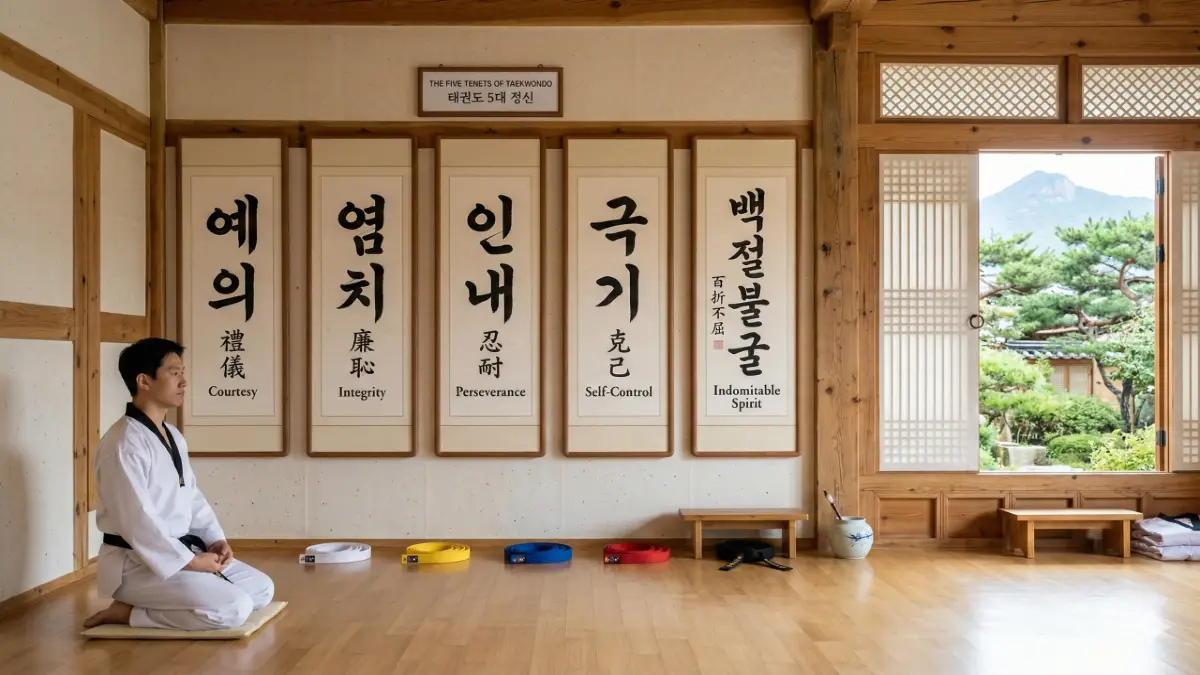 THE FIVE TENETS OF TAEKWONDO
태권도 5대 정신
예의
禮儀
Courtesy
염치
廉恥
Integrity
인내
忍耐
Perseverance
극기
克己
Self-Control
백절불굴
百折不屈
Indomitable
Spirit